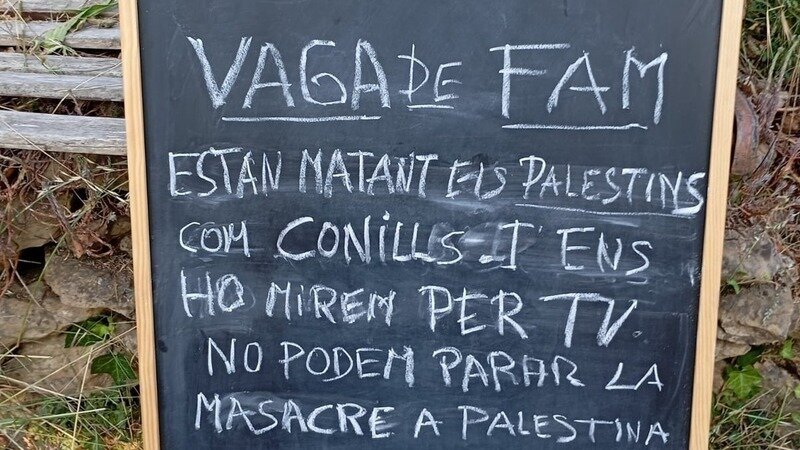 VAGA DE FAM
ESTAN MATANT ELS PALESTINS
COM CONILLS I ENS
HO MIREM PER TV.
NO PODEM PARAR LA
MASACRE A PALESTINA